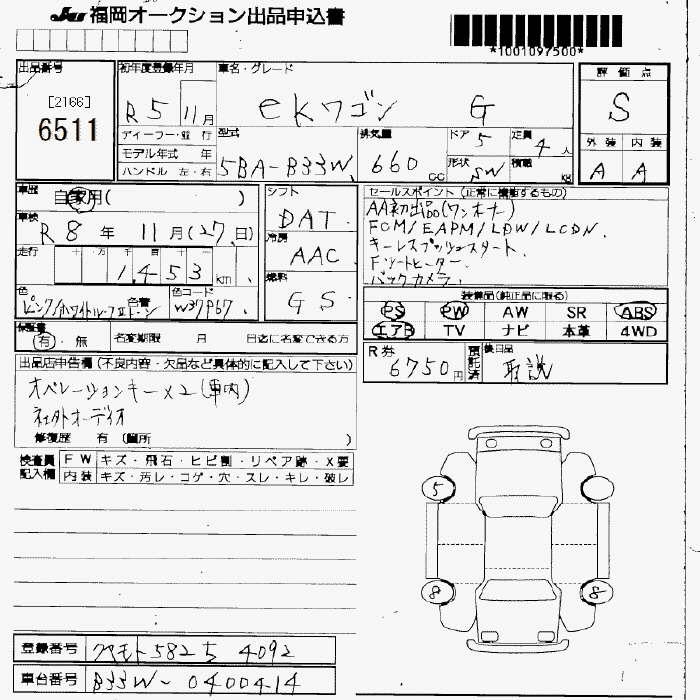 JU 福岡オークション出品申込書
*1001097500*
出品番号
[2166]
6511
初年度登録年月
R5 11月
車名・グレード
eKワゴン G
評価点
S
ディーラー・並行
モデル年式 年
ハンドル 左・右
型式
5BA-B33W
排気量
660 CC
ドア 5
定員 4人
形状 SW
積載 KG
外装 内装
A A
車歴
自家用( )
車検
R8年 11月(27日)
走行
十 万 千 百 十
1,453 km
色
ピンク/ホワイトルーフⅡトーン
色替
色コード
W37P67
シフト
DAT
冷房
AAC
燃料
GS
セールスポイント(正常に機能するもの)
AA初出品(ワンオーナー)
FCM/EAPM/LDW/LCDN.
キーレスプッシュスタート.
Fシートヒーター.
バックカメラ.
装備品(純正品に限る)
PS PW AW SR ABS
エアB TV ナビ 本革 4WD
保証書
有・無
名変期限 月 日迄に名変できる方
R券
6750円
預託済
後日品
取説
出品店申告欄(不良内容・欠品など具体的に記入して下さい)
オペレーションキー×2(車内)
社外オーディオ
修復歴 有 (箇所 )
検査員記入欄
FW キズ・飛石・ヒビ割・リペア跡・X要
内装 キズ・汚レ・コゲ・穴・スレ・キレ・破レ
5
8 8
登録番号 クマモト582 ち 4092
車台番号 B33W-0400414